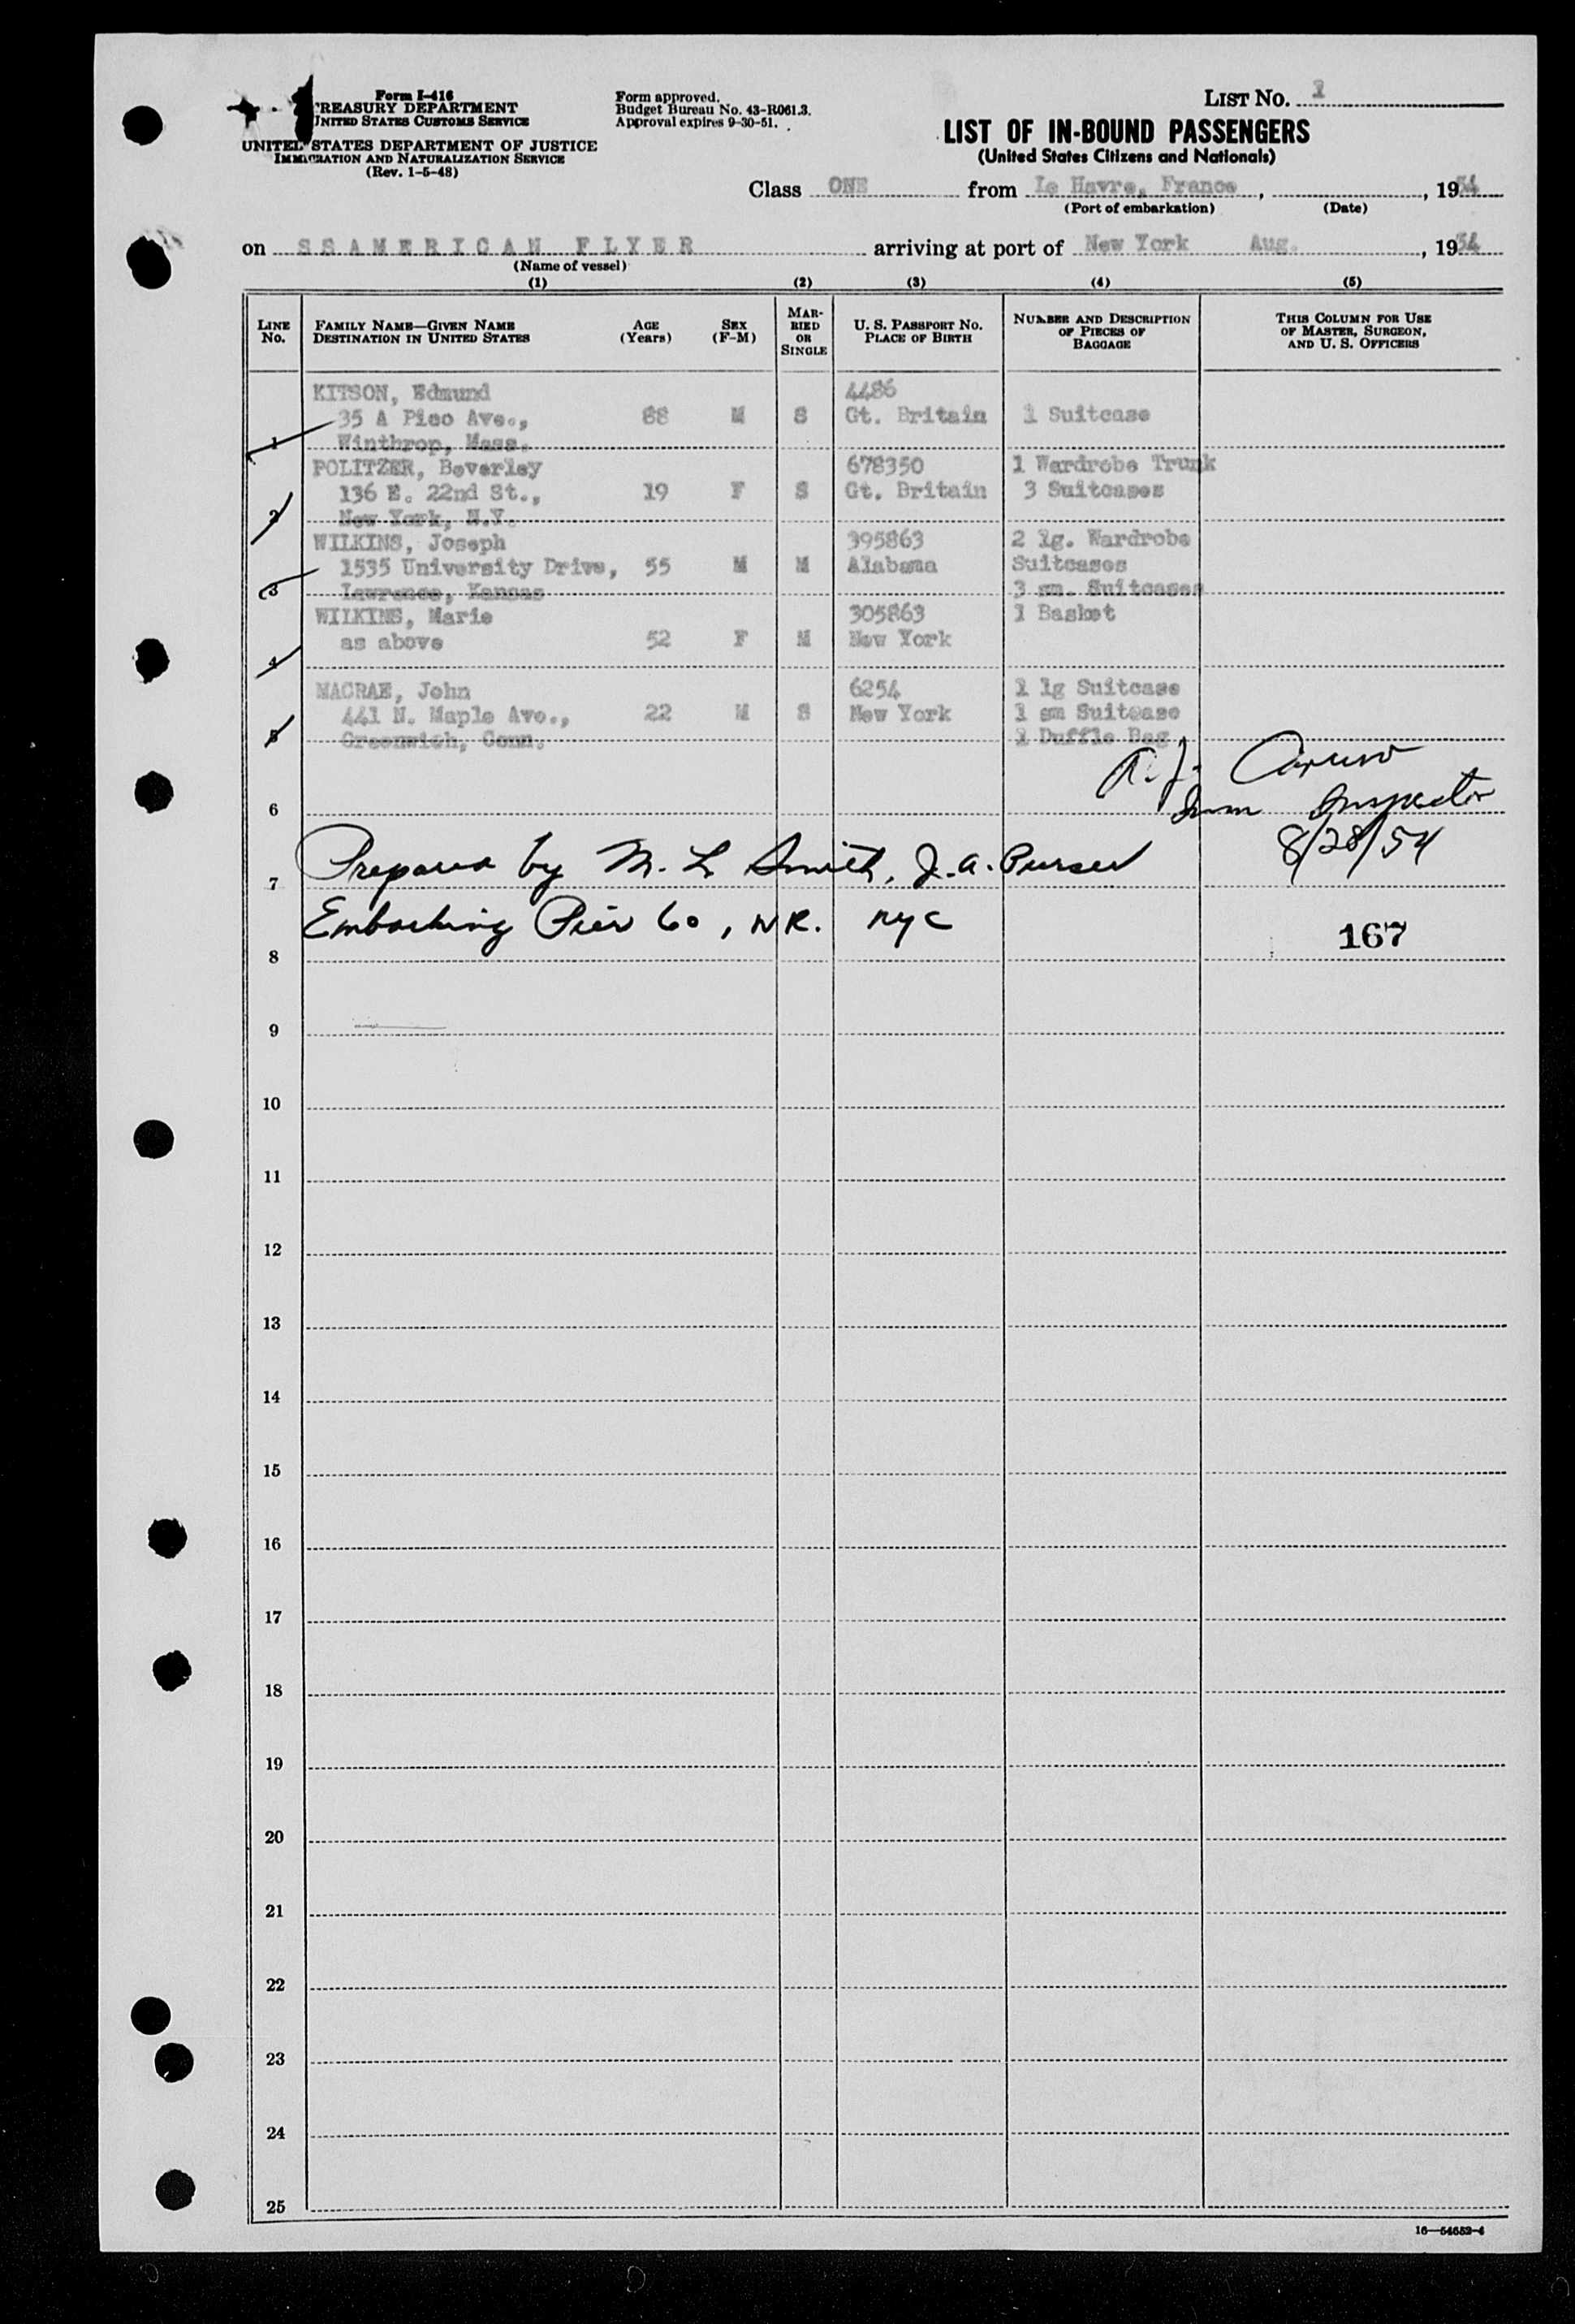 Form I-416
TREASURY DEPARTMENT
UNITED STATES CUSTOMS SERVICE
UNITED STATES DEPARTMENT OF JUSTICE
IMMIGRATION AND NATURALIZATION SERVICE
(Rev. 1-5-48)
Form approved.
Budget Bureau No. 43-R061.3.
Approval expires 9-30-51.
LIST NO. 1
LIST OF IN-BOUND PASSENGERS
(United States Citizens and Nationals)
Class ONE from Le Havre, France, , 1954
(Port of embarkation) (Date)
on SS AMERICAN FLYER arriving at port of New York Aug. , 1954
(Name of vessel)
(1) (2) (3) (4) (5)
LINE NO. FAMILY NAME—GIVEN NAME DESTINATION IN UNITED STATES AGE (YEARS) SEX (F-M) MARRIED OR SINGLE U. S. PASSPORT NO. PLACE OF BIRTH NUMBER AND DESCRIPTION OF PIECES OF BAGGAGE THIS COLUMN FOR USE OF MASTER, SURGEON, AND U. S. OFFICERS
KITSON, Edmund 4486
35 A Pico Ave., 68 M S Gt. Britain 1 Suitcase
1 Winthrop, Mass.
POLITZER, Beverley 678350 1 Wardrobe Trunk
136 E. 22nd St., 19 F S Gt. Britain 3 Suitcases
2 New York, N.Y.
WILKINS, Joseph 395863 2 lg. Wardrobe
1535 University Drive, 55 M M Alabama Suitcases
3 Lawrence, Kansas 3 sm. Suitcases
WILKINS, Marie 305863 1 Basket
as above 52 F M New York
4
MACRAE, John 6254 1 lg Suitcase
441 N. Maple Ave., 22 M S New York 1 sm Suitcase
5 Greenwich, Conn. 1 Duffle Bag
R. J. Caruso
6 Imm Inspector
8/28/54
7 Prepared by M. L Smith, J.A. Purser
8 Embarking Pier 60, NR. NYC
167
9
10
11
12
13
14
15
16
17
18
19
20
21
22
23
24
25
16—54652-4